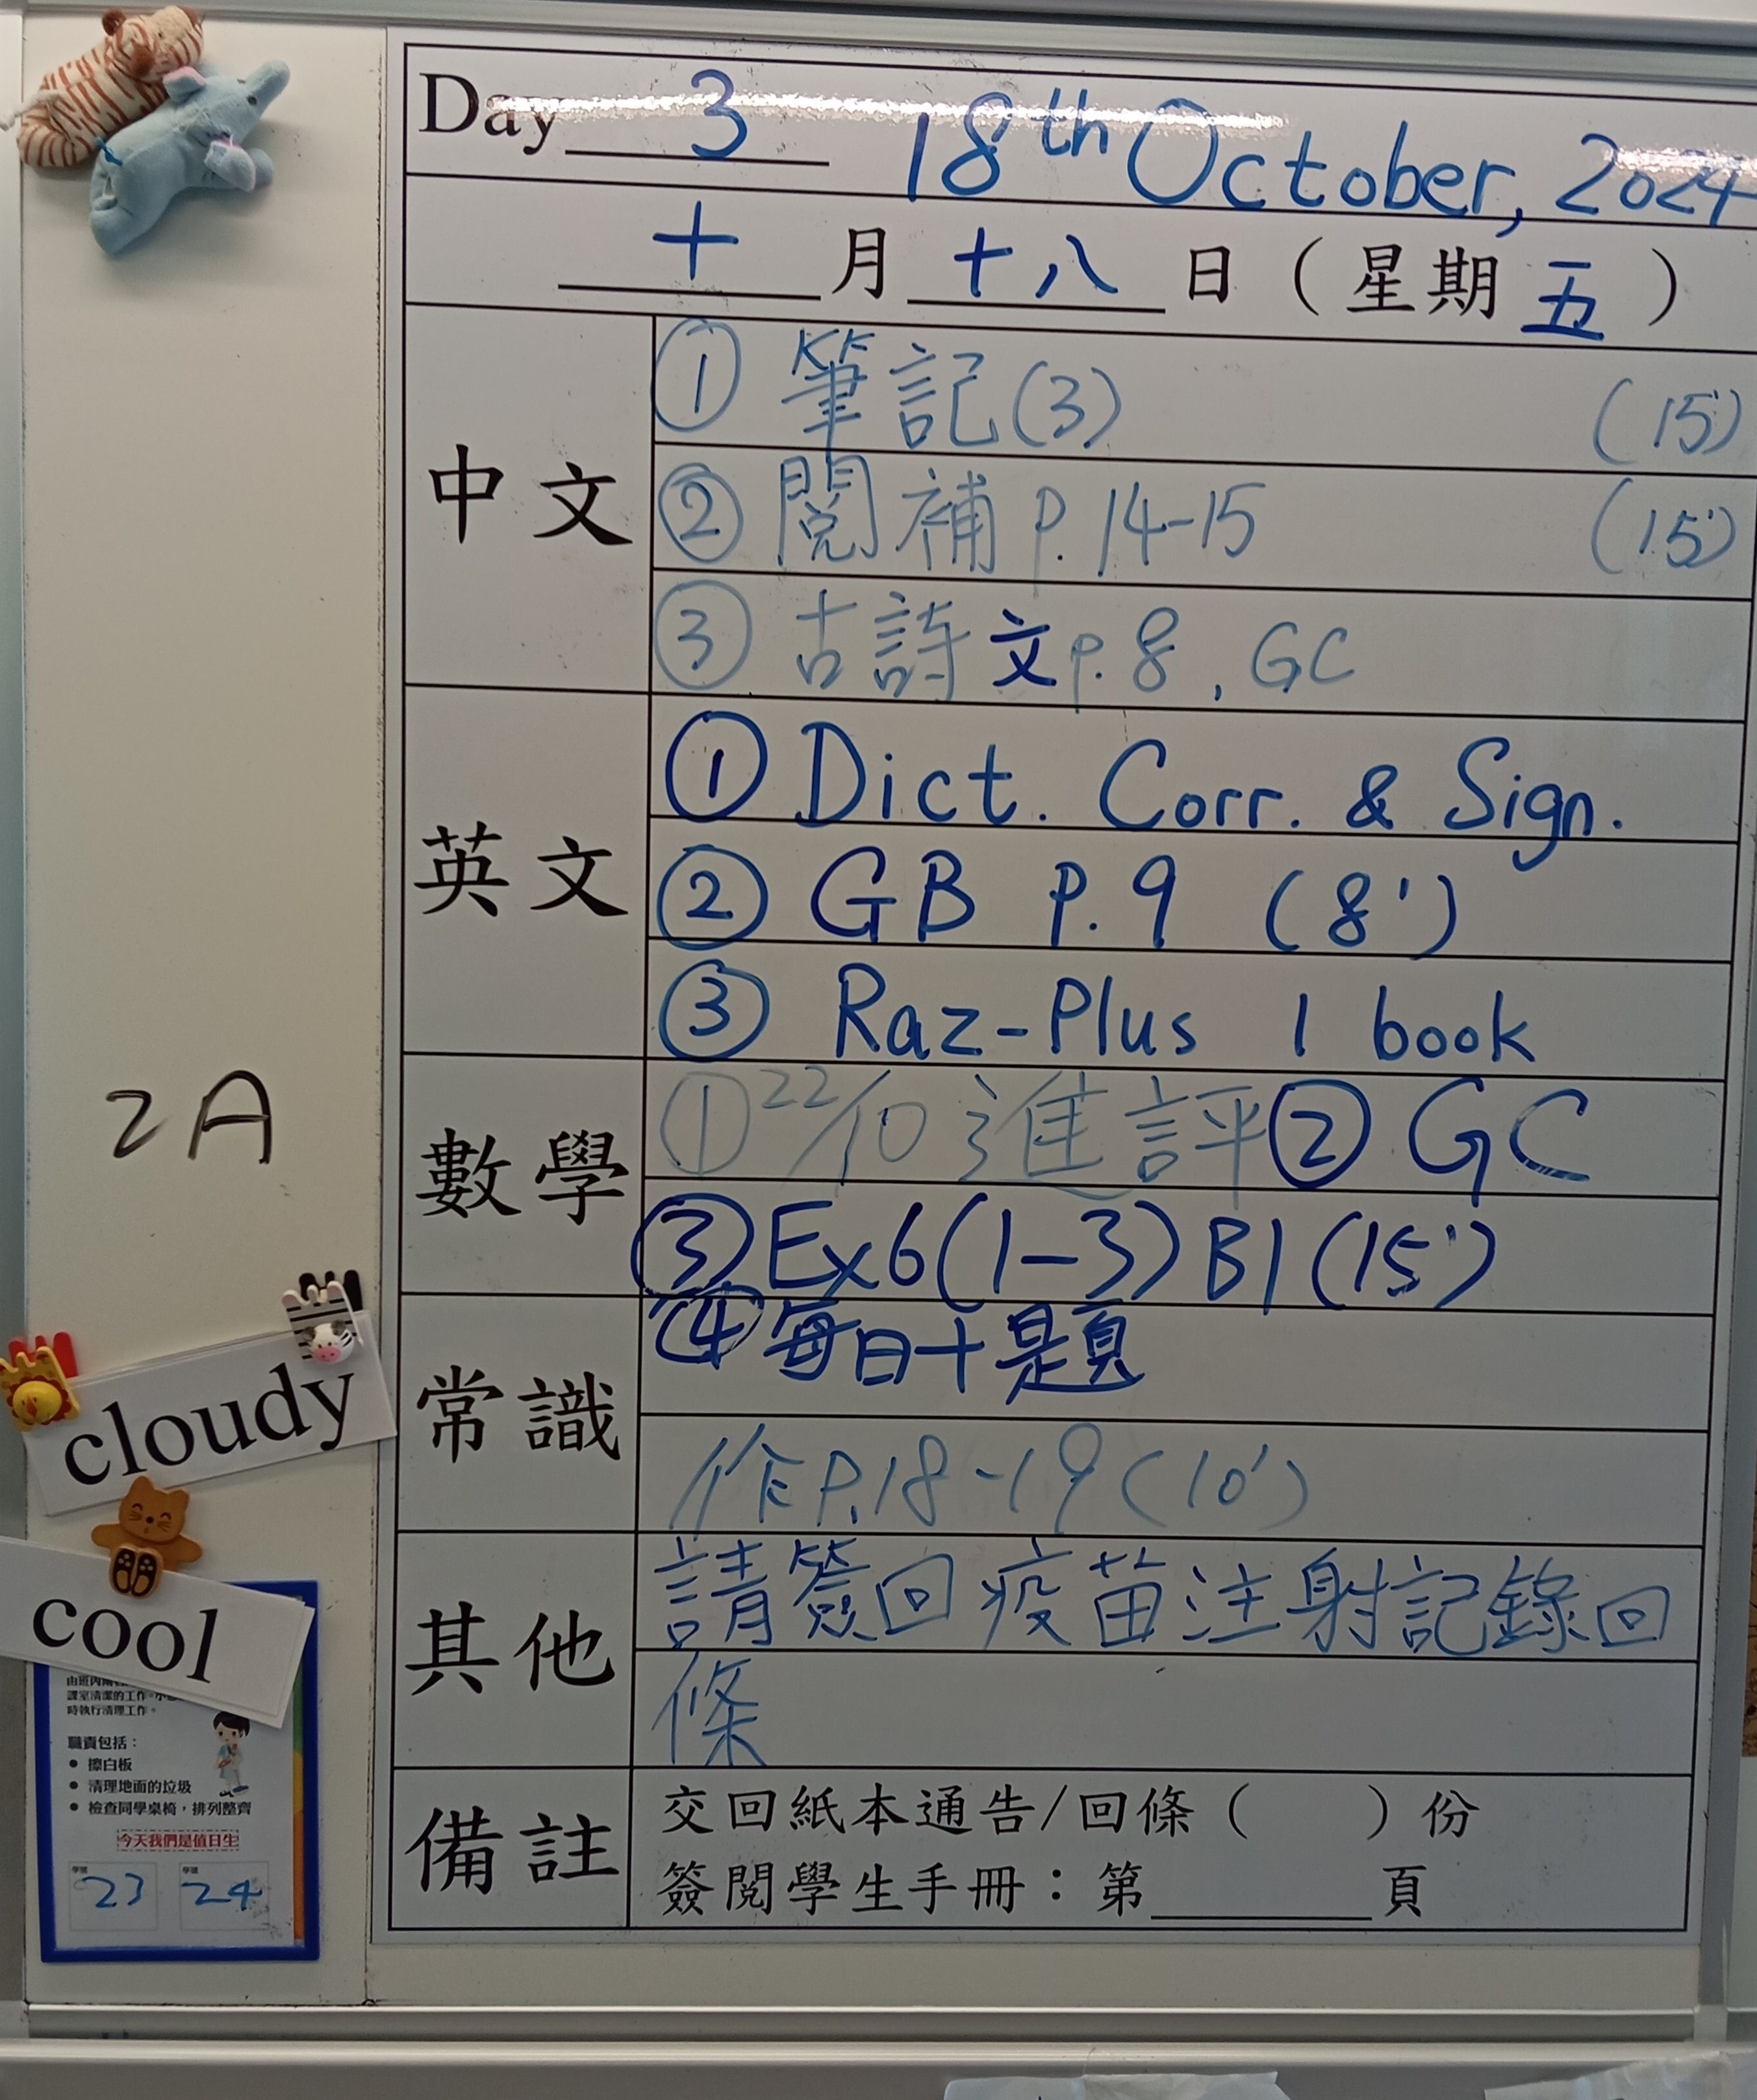 Day 3 18th October, 2024
十 月 十八 日（星期 五）
中文
① 筆記(3) (15')
② 閱補 P.14-15 (15')
③ 古詩文 p.8, GC
英文
① Dict. Corr. & Sign.
② GB P.9 (8')
③ Raz-Plus 1 book
數學
① 22/10 進評 ② GC
③ Ex6(1-3) B1 (15')
④ 每日十題
常識
作 P.18-19 (10')
其他
請簽回疫苗注射記錄回
條
備註
交回紙本通告/回條（ ）份
簽閱學生手冊：第 頁
2A
cloudy
cool
課室清潔的工作。
時執行清理工作。
職責包括：
• 擦白板
• 清理地面的垃圾
• 檢查同學桌椅，排列整齊
今天我們是值日生
學號 學號
23 24